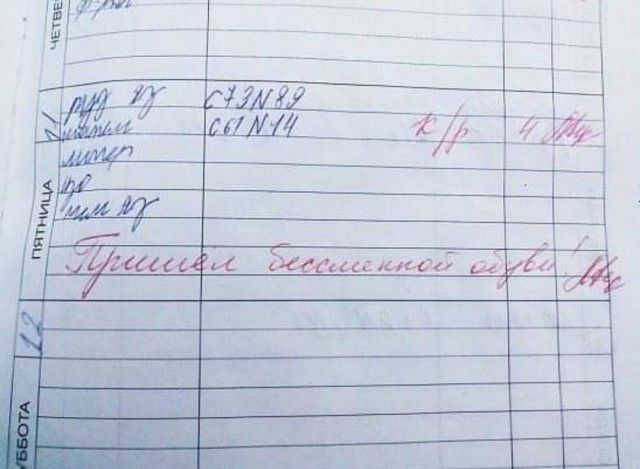 ЧЕТВЕ
11
рус яз С73N89
матем С61N14 к/р. 4
литер
ПЯТНИЦА
Пришёл бессменной обуви!
12
УББОТА